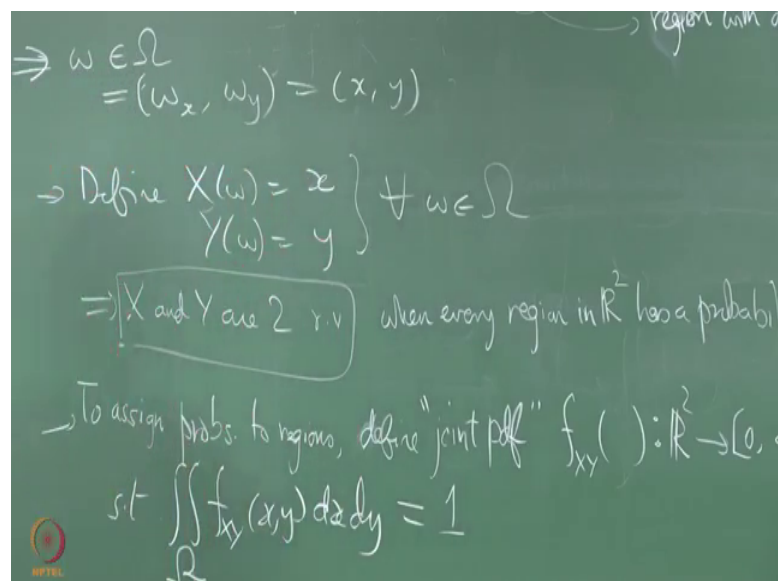 region with
⇒ ω ∈ Ω
= (ω_x, ω_y) = (x, y)
→ Define X(ω) = x } ∀ ω ∈ Ω
Y(ω) = y
⇒ X and Y are 2 r.v when every region in ℝ² has a probabil
→ To assign probs. to regions, define "joint pdf" f_XY( ) : ℝ² → [0,
s.t ∬_Ω f_XY(x,y) dx dy = 1
NPTEL